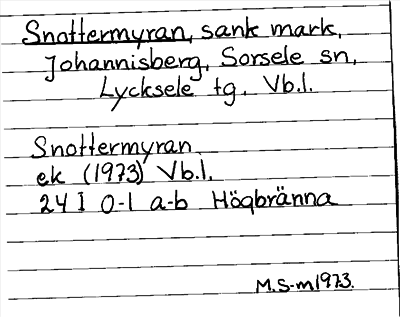 Snottermyran, sank mark,
Johannisberg, Sorsele sn,
Lycksele tg. Vb.l.
Snottermyran
ek (1973) Vb.l.
24 I 0-1 a-b Högbränna
M.S-m 1973.